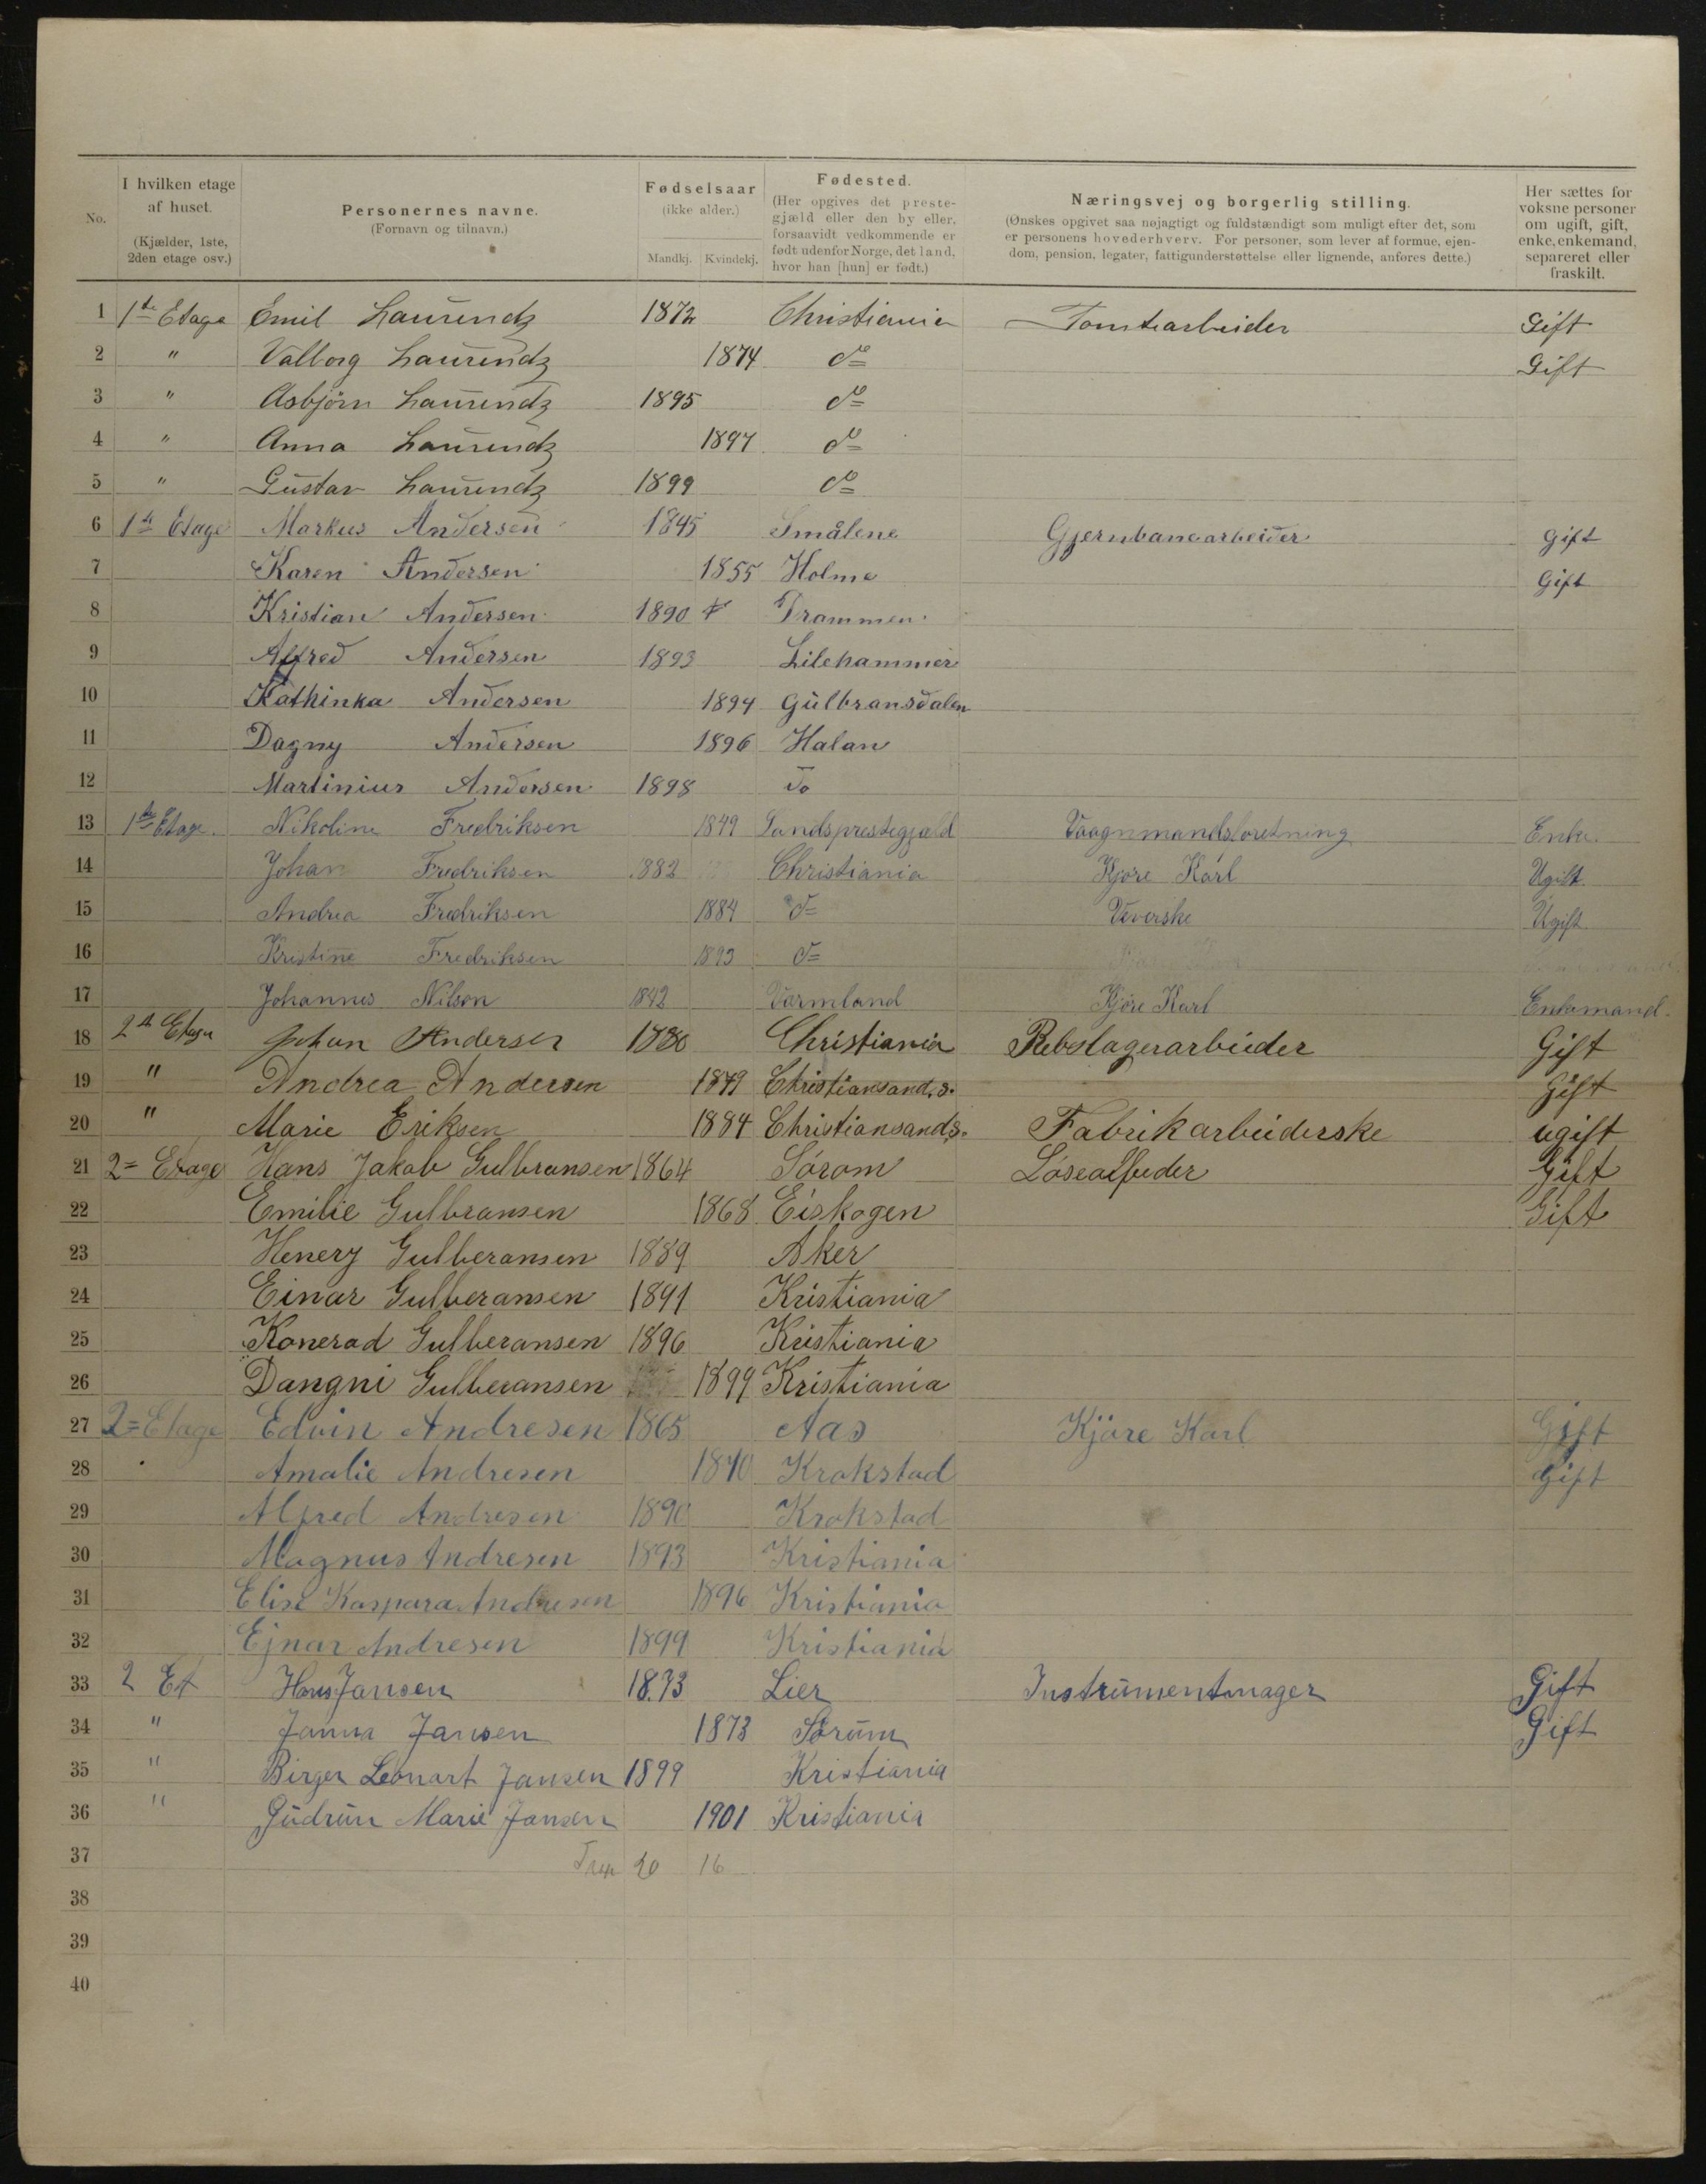 No.
I hvilken etage af huset. (Kjælder, 1ste, 2den etage osv.)
Personernes navne. (Fornavn og tilnavn.)
Fødselsaar (ikke alder.) Mandkj. Kvindekj.
Fødested. (Her opgives det prestegjæld eller den by eller, forsaavidt vedkommende er født udenfor Norge, det land, hvor han [hun] er født.)
Næringsvej og borgerlig stilling. (Ønskes opgivet saa nøjagtigt og fuldstændigt som muligt efter det, som er personens hovederhverv. For personer, som lever af formue, ejendom, pension, legater, fattigunderstøttelse eller lignende, anføres dette.)
Her sættes for voksne personer om ugift, gift, enke, enkemand, separeret eller fraskilt.
1 1ste Etage Emil Laurendz 1872 Christiania Tomtearbeider Gift
2 " Valborg Laurendz 1874 do Gift
3 " Asbjörn Laurendz 1895 do
4 " Anna Laurendz 1897 do
5 " Gustav Laurendz 1899 do
6 1ste Etage Markus Andersen 1845 Smålene Gjernbanearbeider Gift
7 Karen Andersen 1855 Holme Gift
8 Kristian Andersen 1890 Drammen
9 Alfred Andersen 1893 Lilehammer
10 Kathinka Andersen 1894 Gulbransdalen
11 Dagny Andersen 1896 Halan
12 Martinius Andersen 1898 do
13 1ste Etage Nikoline Fredriksen 1849 Landsprestegjæld Vaagnmandsforetning Enke
14 Johan Fredriksen 1882 Christiania Kjøre Karl Ugift
15 Andrea Fredriksen 1884 do Veverske Ugift
16 Kristine Fredriksen 1893 do
17 Johannes Nilsen 1842 Varmland Kjøre Karl Enkemand
18 2den Etage Johan Andersen Christiania Rebslagerarbeider Gift
19 " Andrea Andersen 1849 Christiansand.s. Gift
20 " Marie Eriksen 1884 Christiansands. Fabrikarbeiderske ugift
21 2= Etage Hans Jakob Gulbransen 1864 Sørom Løsearbeder Gift
22 Emilie Gulbransen 1868 Eiskogen Gift
23 Henery Gulberansen 1889 Aker
24 Einar Gulberansen 1891 Kristiania
25 Konerad Gulberansen 1896 Kristiania
26 Dangni Gulberansen 1899 Kristiania
27 2= Etage Edvin Andresen 1865 Aas Kjöre Karl Gift
28 Amalie Andresen 1870 Krakstad Gift
29 Alfred Andresen 1890 Krakstad
30 Magnus Andresen 1893 Kristiania
31 Elise Kaspara Andresen 1896 Kristiania
32 Ejnar Andresen 1899 Kristiania
33 2 Et Hans Jansen 18.73 Lier Instrumentmager Gift
34 " Janna Jansen 1873 Sørum Gift
35 " Birger Leonart Jansen 1899 Kristiania
36 " Gudrun Marie Jansen 1901 Kristiania
37 20 16
38
39
40